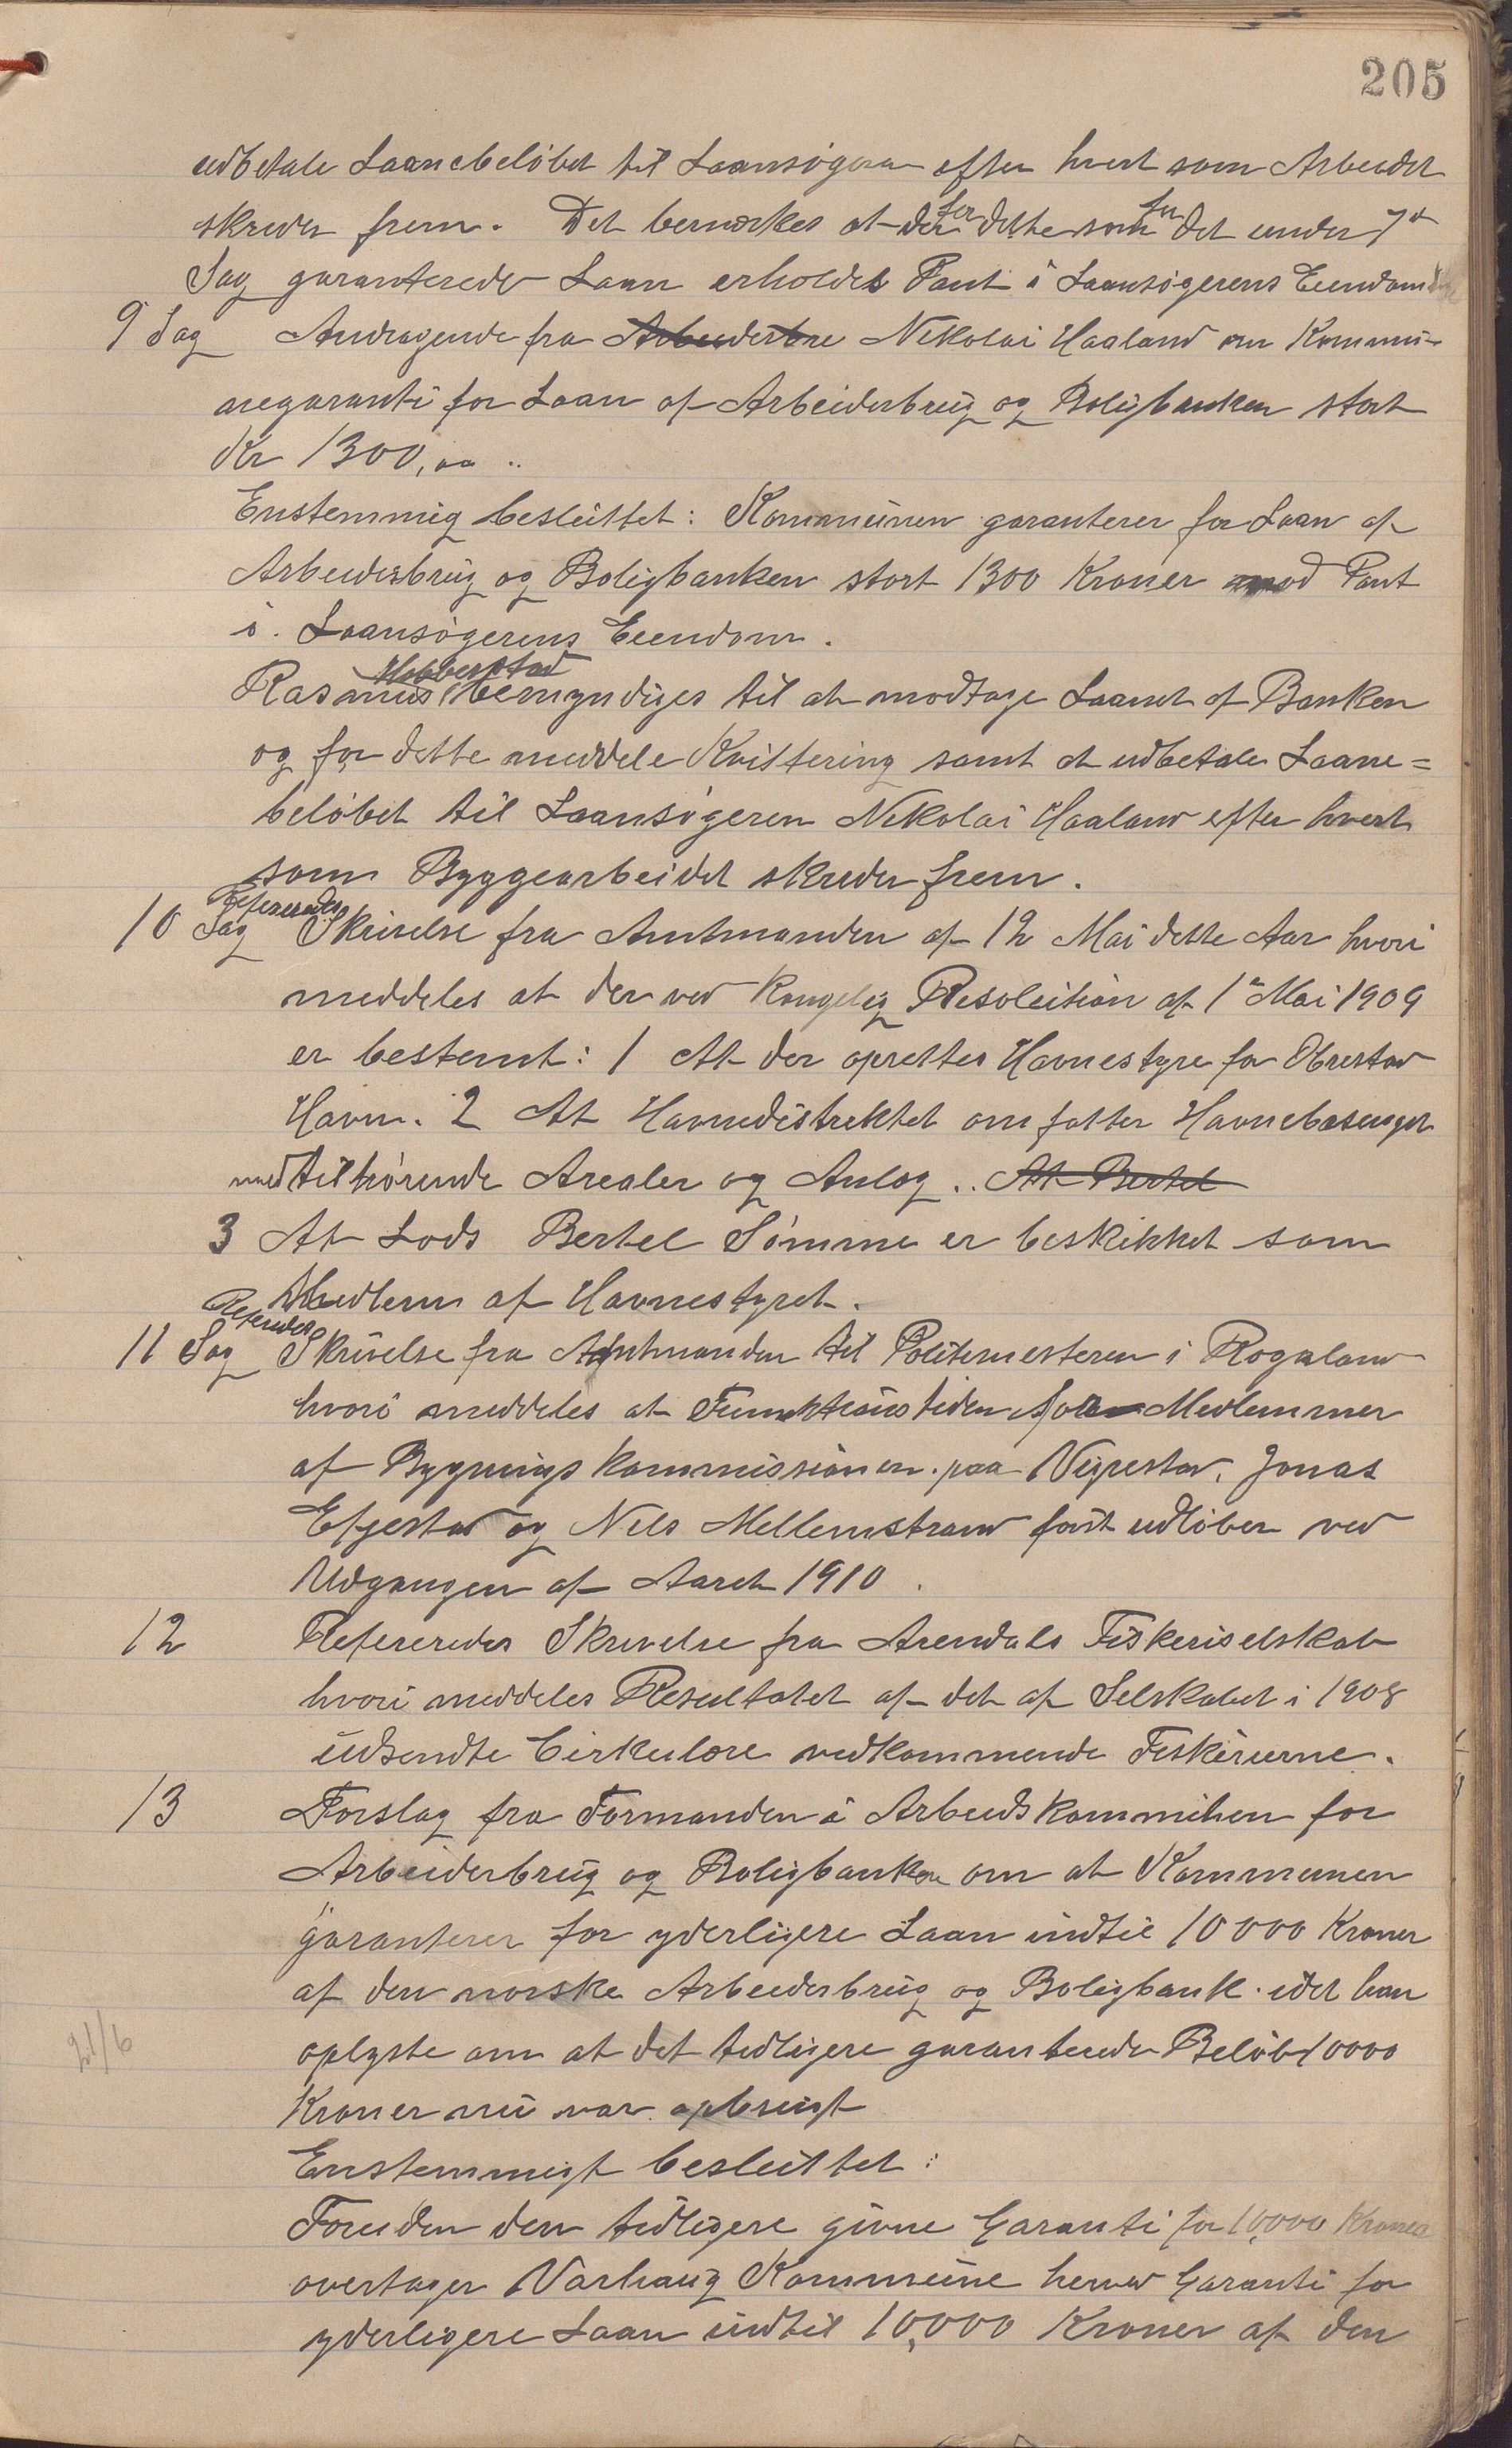 205
udbetale Laanebeløbet til Laansøgeren efter hvert som Arbeidet
skrider frem. Det bemærkes at der for dette som for det under 7de
Sag garanterede Laan erholdes Pant i Laansøgerens Eiendom
9 Sag Andragende fra Arbeiderbre Nikolai Haaland om Kommu-
negaranti for Laan af Arbeiderbrug og Boligbanken stort
Kr 1300,00 ..
Enstemmig besluttet: Kommunen garanterer for Laan af
Arbeiderbrug og Boligbanken stort 1300 Kroner mod Pant
i Laansøgerens Eiendom.
Rasmus Hobberstad bemyndiges til at modtage Laanet af Banken
og for dette meddele Kvittering samt at udbetale Laane=
beløbet til Laansøgeren Nikolai Haaland efter hvert
som Byggearbeidet skrider frem.
10 Sag Refereredes Skrivelse fra Amtmanden af 12 Mai dette Aar hvori
meddeles at der ved Kongelig Resolution af 1ste Mai 1909
er bestemt: 1 At der oprettes Havnestyre for Obrestad
Havn. 2 At Havnedistriktet omfatter Havnebasenget
med tilhørende Arealer og Anlæg. . At Bertel
3 At Lods Bertel Sømme er beskikket som
Medlem af Havnestyret.
11 Sag Refereredes Skrivelse fra Amtmanden til Politimesteren i Rogaland
hvori meddeles at Funktionstiden for Medlemmer
af Bygningskommissionen paa Vigrestad, Jonas
Efjestad og Nils Mellemstrand først udløber ved
Udgangen af Aaret 1910.
12 Refereredes Skrivelse fra Arendals Fiskeriselskab
hvori meddeles Resultatet af det af Selskabet i 1908
udsendte Cirkulære vedkommende Fiskerierne.
13 Forslag fra Formanden i Arbeidskomiteen for
Arbeiderbrug og Boligbanken om at Kommunen
garanterer for yderligere Laan indtil 10000 Kroner
af den norske Arbeiderbrug og Boligbank. idet han
oplyste om at det tidligere garanterede Beløb 10000
21/6
Kroner nu var opbrugt
Enstemmigt besluttet:
Foruden den tidligere givne Garanti for 10,000 Kroner
overtager Varhaug Kommune herved Garanti for
yderligere Laan indtil 10,000 Kroner af den